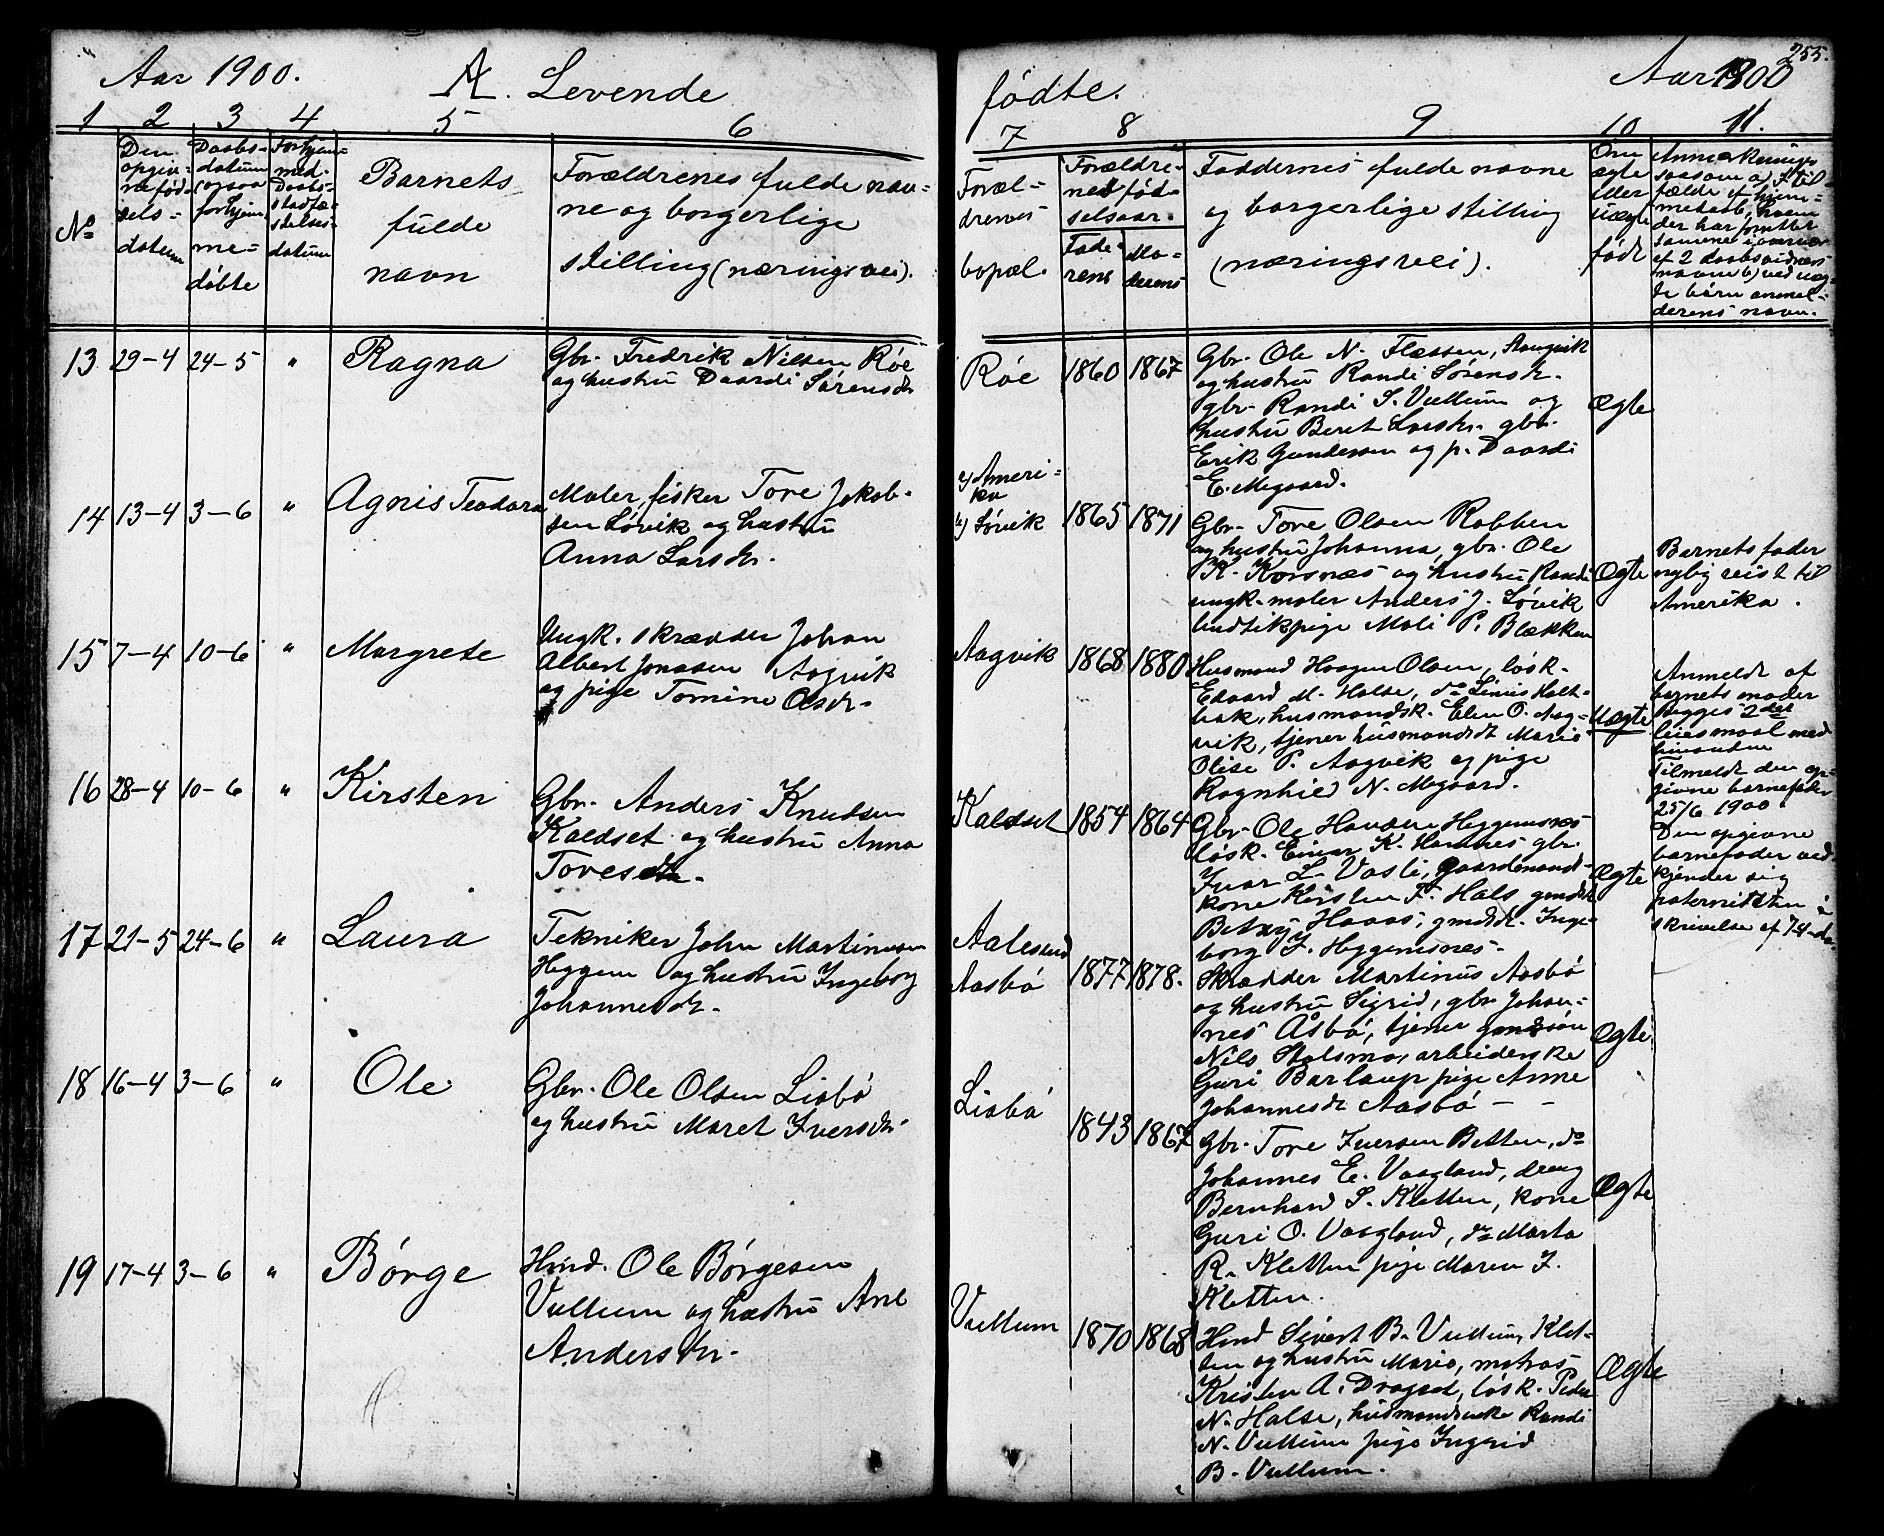 Aar 1900.
A. Levende
fødte.
Aar 1900
255.
1 2 3 4 5 6
7 8 9 10 11.
No
Den
opgiv-
ne fød-
sels-
datum
Daabs-
datum
(ogsaa
for hjem-
me-
døbte
For hjem-
med.
Daabs-
stadfæ-
stelses-
datum
Barnets
fulde
navn
Forældrenes fulde nav-
ne og borgerlige
stilling (næringsvei).
Foræl-
drenes
bopæl.
Forældre-
nes fød-
selsaar.
Fade-
rens
Mo-
derens
Faddernes fulde navne
og borgerlige stilling
(næringsvei).
Om
ægte
eller
uægte
født
Anmærkninger
saasom a) I til-
fælde af hjem-
medaab, hvem
der har forrettet
samme i overvær
af 2 daabsvidners
navne b) ved uæg-
te børn anmel-
derens navn.
13 29-4 24-5 " Ragna
Gbr. Fredrik Nilsen Røe
og hustru Daardi Sørensdr
Røe 1860 1867
Gbr. Ole N. Flæssen, Aangvik
og hustru Randi Sørensdr.
gbr. Randi S. Vullum og
hustru Beret Larsdr. gbr.
Erik Gundersen og p. Daardi
E. Megaard.
Ægte
14 13-4 3-6 " Agnis Teodora
Maler, fisker Tore Jakob-
sen Søvik og hustru
Anna Larsdr.
a) Ameri-
ka
b) Søvik 1865 1871
Gbr. Tore Olsen Robben
og hustru Johanna, gbr. Ole
K. Korsnæs og hustru Randi
ungk. maler Anders J. Søvik
budeikpige Mali P. Blækken
Ægte
Barnets fader
nylig reist til
Amerika.
15 7-4 10-6 " Margrete
Ungk. skrædder Johan
Albert Jonassen Aagvik
og pige Tomine Olsdr.
Aagvik 1868 1880
Husmand Haagen Olsen, løsk.
Edvard M. Halse, do Linius Holt-
bak, husmandsk. Elen O. Aag-
vik, tjener husmandsdt Marie
Olise P. Aagvik og pige
Ragnhild N. Megaard.
Uægte
Anmeldt af
barnets moder
Begges 2det
leiesmaal med
hinanden
Tilmeldt den op-
givne barnefader
25/6 1900
Den opgivne
barnefader ved-
kjender sig
paterniteten i
skrivelse af 7-8-da.
16 28-4 10-6 " Kirsten
Gbr. Anders Knudsen
Kaldset og hustru Anna
Toresdtr.
Kaldset 1854 1864
Gbr. Ole Hansen Heggemsnæs
løsk. Einar K. Hamnes gbr.
Ivar L. Vasli, gaardmands-
kone Kirsten F. Hals gmdsdt
Betzy Haaas, gmdsdt. Inge-
borg I. Heggemsnes.
Ægte
17 21-5 24-6 " Laura
Tekniker John Martinusen
Heggem og hustru Ingeborg
Johannesdr.
Aalesund
Aasbø 1877 1878.
Skrædder Martinus Aasbø
og hustru Sigrid, gbr. Johan-
nes Åsbø, tjener gmdssøn
Nils Stolsmo, arbeiderske
Guri Barlaup pige Anne
Johannesdt Aasbø - -
Ægte
18 16-4 3-6 " Ole
Gbr. Ole Olsen Lisbø
og hustru Maret Iversdr.
Lisbø 1843 1867
Gbr. Tore Iversen Botten, do
Johannes E. Vaagland, dreng
Bernhard S. Kletten, kone
Guri O. Vaagland, do Marta
R. Kletten pige Maren I.
Kletten.
Ægte
19 17-4 3-6 " Børge
Hmd. Ole Børgesen
Vullum og hustru Ane
Andersdr.
Vullum 1870 1868
Hmd Sivert B. Vullum, Klet-
ten og hustru Marie, matros
Kristen A. Dragset, løsk. Peder
N. Halse, husmandsenke Randi
N. Vullum pige Ingrid
B. Vullum.
Ægte